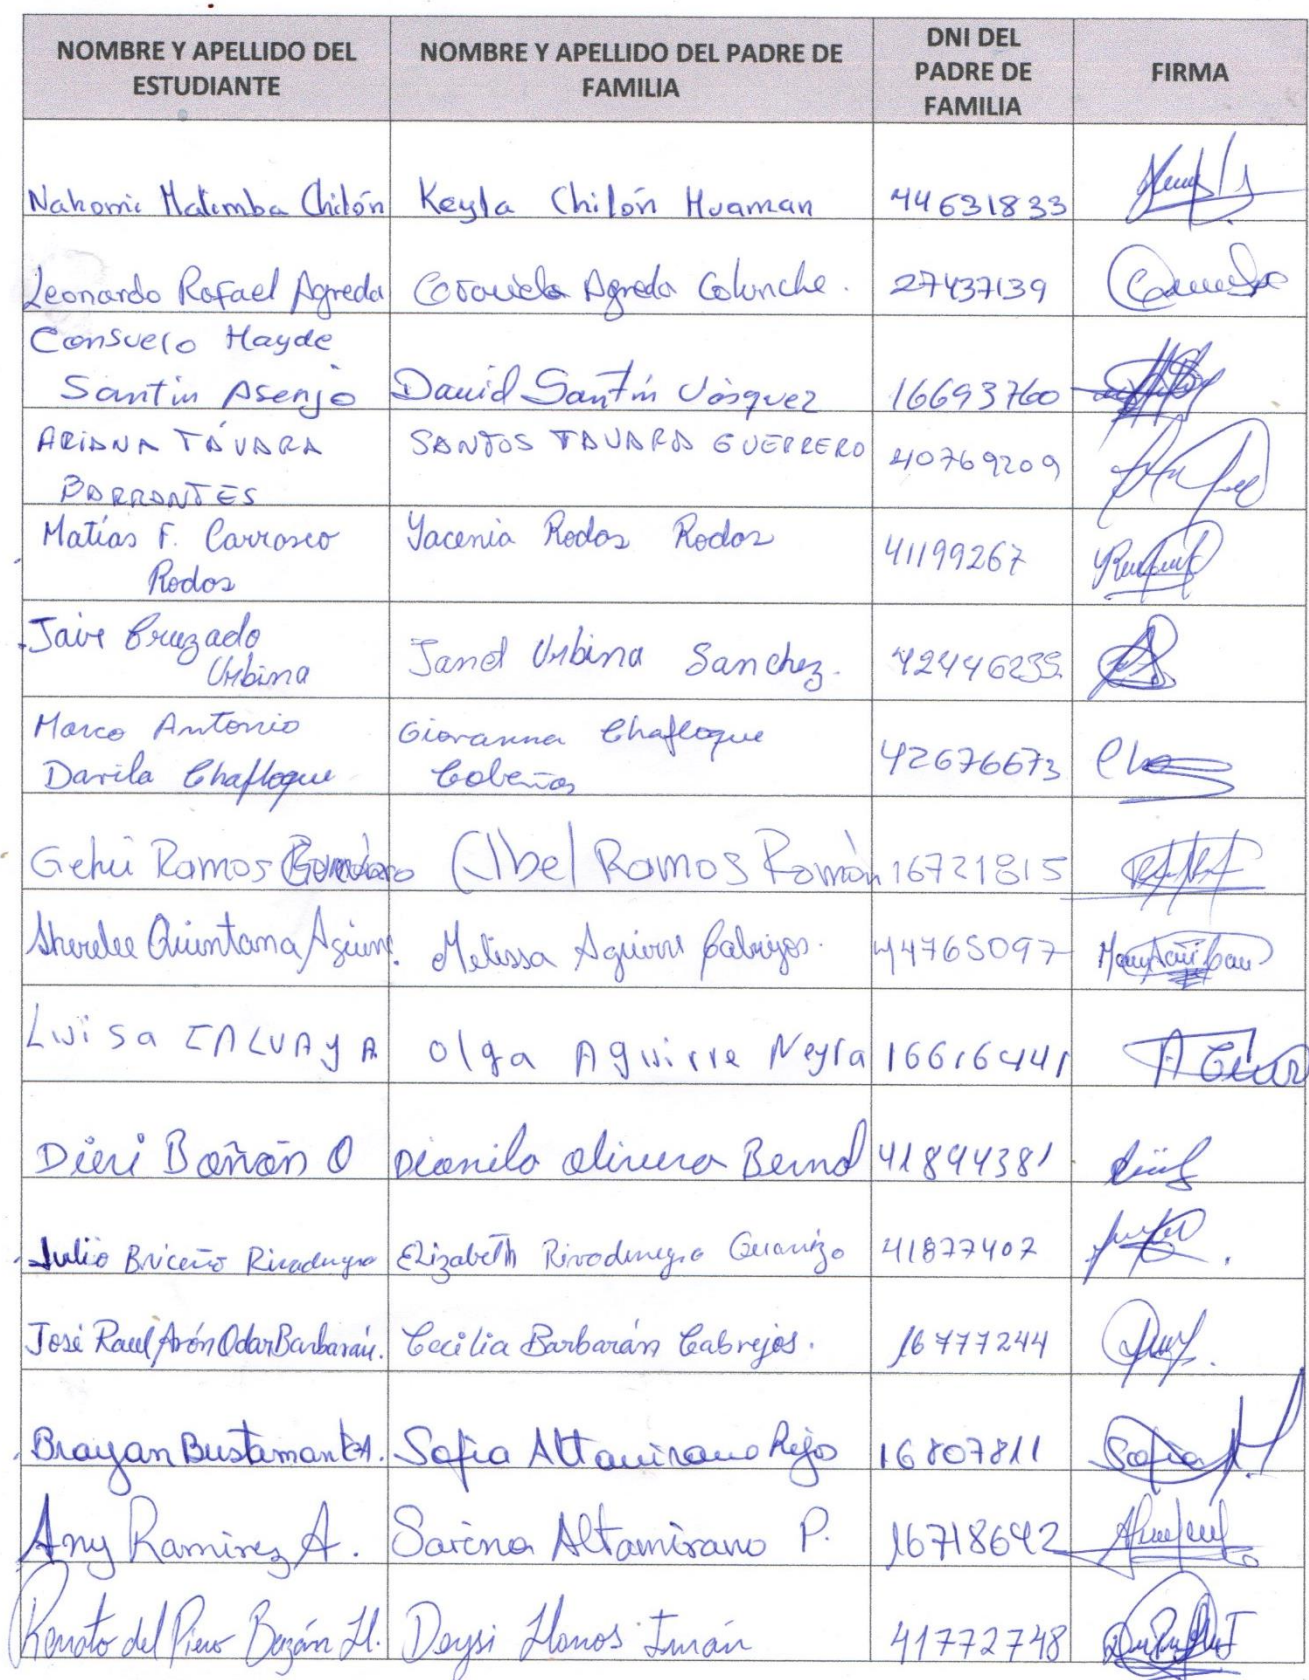 NOMBRE Y APELLIDO DEL ESTUDIANTE NOMBRE Y APELLIDO DEL PADRE DE FAMILIA DNI DEL PADRE DE FAMILIA FIRMA
Nahomi Matemba Chilón Keyla Chilón Huaman 44631833
Leonardo Rafael Agreda Agreda Colunche. 27437139
Consuelo Hayde
Santín Asenjo David Santín Vásquez 16693760
ARIANA TÁVARA SANTOS TAVARA GUERRERO 40769209
BARRANTES
Matías F. Carrasco Yacenia Rodas Rodas 41199267
Rodas
Cruzado
Urbina Janet Urbina Sanchez. 42446235
Marco Antonio Giovanna Chafloque
Davila Chafloque Cobeñas 42676673
Gehú Ramos Abel Ramos Román 16721815
Quintana Melissa Aguirre Cabrejos. 44765097
Luisa Olga Aguirre Neyra 16616441
Bañón O Dionila Olivera Bernal 41894381
Julio Briceño Rivadeneyra Elizabeth Rivadeneyra Guanizo 41877407
José Raul Arón Odar Barbarán. Cecilia Barbarán Cabrejos. 16777244
Brayan Bustamante A. Sofia Altamirano Rojo 16807811 Sofia
Any Ramirez A. Sarina Altamirano P. 16718642
Renato del Piero Bazán Ll. Deysi Llanos Imán 41772748